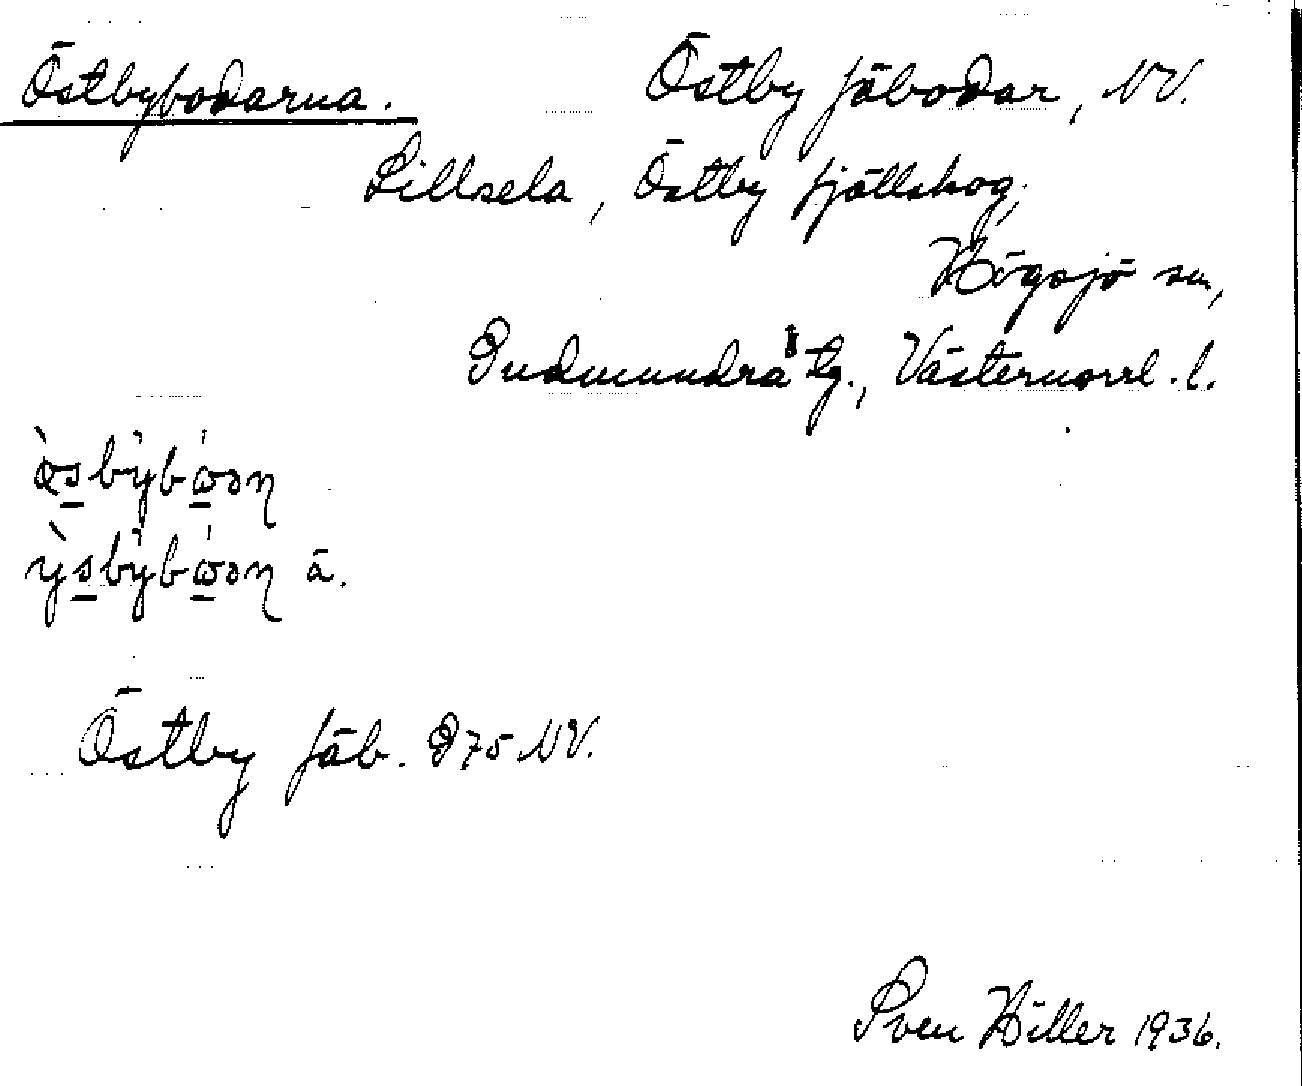 Östbybodarna. Östby fäbodar, NV.
Lillsela, Östby fjällskog,
Högsjö sn,
Gudmundrå tg., Västernorrl. l.
ä.
Östby fäb. G75 NV.
Sven Hiller 1936.